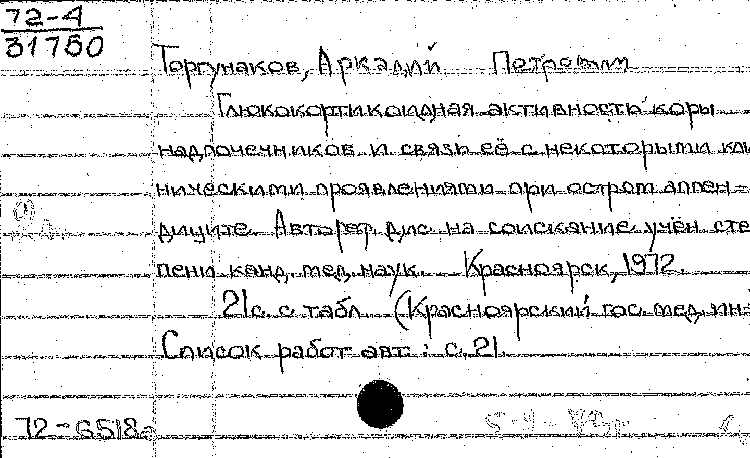 72-4
31750
Торгунаков, Аркадий Петрович
Глюкокортикоидная активность коры
надпочечников и связь её с некоторыми кли
ническими проявлениями при остром аппен-
диците. Автореф. дис. на соискание учён. сте
пени канд. мед. наук. Красноярск, 1972.
21с. с табл. (Красноярский гос. мед. ин
Список работ авт.: с. 21.
72-6518а